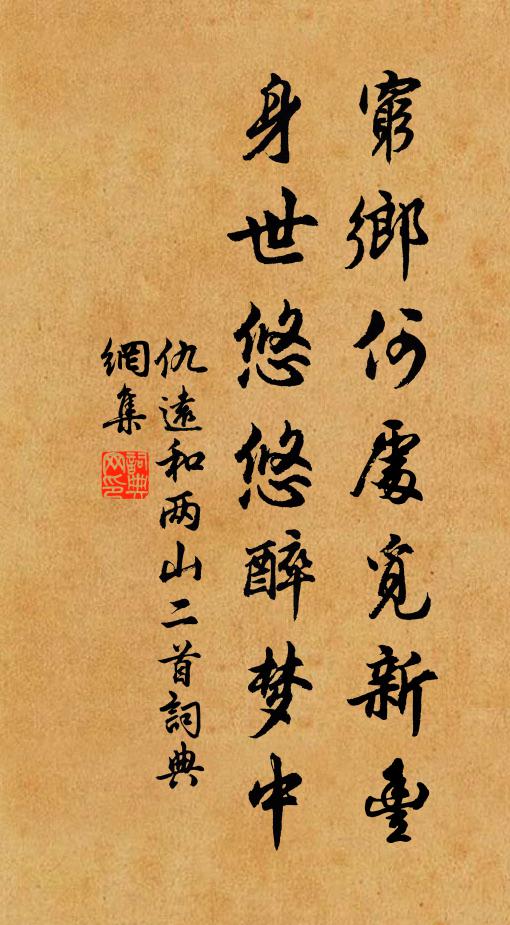 窮鄉何處覓新豐
身世悠悠醉梦中
仇遠和两山二首詞典
網集
詞典
网印